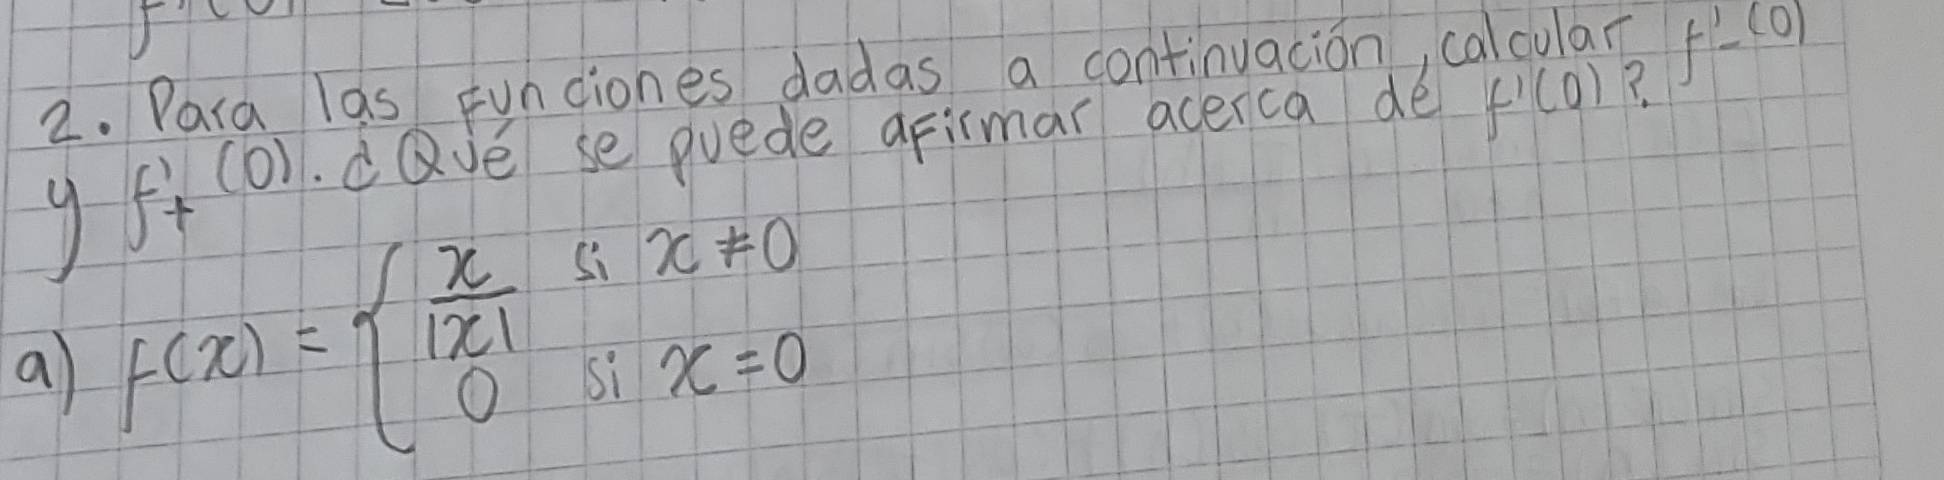 2. Para las funciones dadas a continuación, calcular f'-(0)
y f'+(0). ¿Qué se puede afirmar acerca de f'(0)?
a) f(x) = { x/|x| si x ≠ 0
0 si x = 0